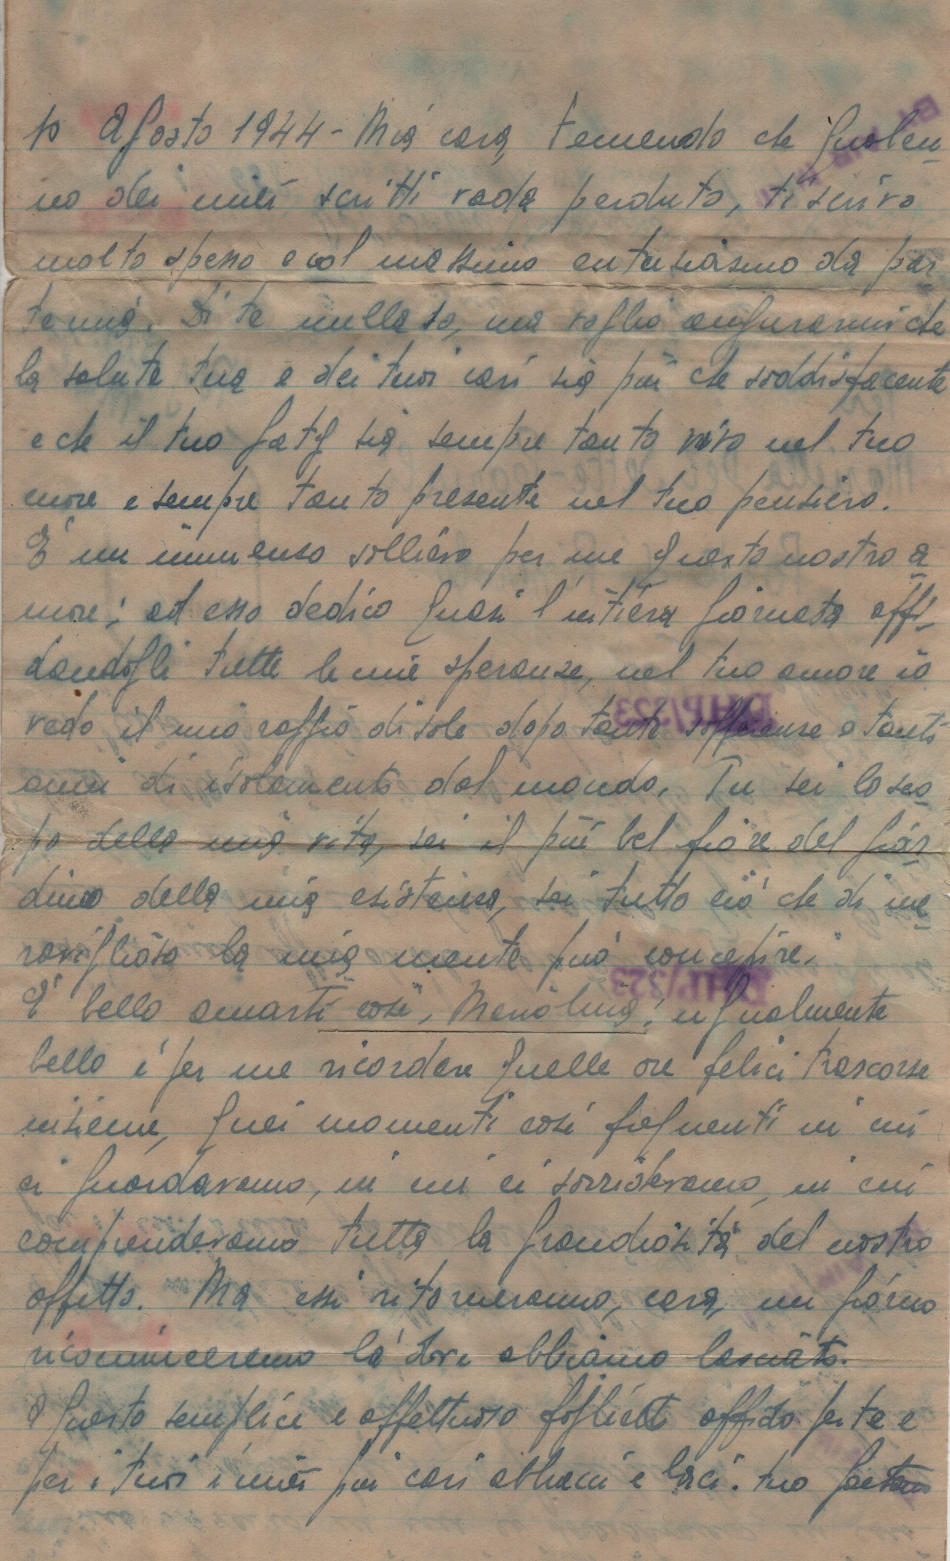 10 Agosto 1944 - Mia cara, temendo che qualcu-
no dei miei scritti vada perduto, ti scrivo
molto spesso e col massimo entusiasmo da par-
te mia. Di te nulla so, ma voglio augurarmi che
la salute tua e dei tuoi cari sia più che soddisfacente
e che il tuo sia sempre tanto vivo nel tuo
cuore e sempre tanto presente nel tuo pensiero.
É un immenso sollievo per me questo nostro a-
more; ad esso dedico quasi l'intiera giornata affi-
dandogli tutte le mie speranze, nel tuo amore io
vedo il mio raggio di sole dopo tante sofferenze e tanti
anni di isolamenti dal mondo. Tu sei lo sco-
po della mia vita, sei il più bel fiore del giar-
dino della mia esistenza, sei tutto ciò che di me-
raviglioso la mia mente può concepire.
É bello amarti così, ugualmente
bello é per me ricordare quelle ore felici trascorse
insieme, quei momenti così frequenti in cui
ci guardavamo, in cui ci sorridevamo, in cui
comprendevamo tutta la grandiosità del nostro
affetto. Ma essi ritorneranno, cara, un giorno
ricominceremo là dove abbiamo lasciato.
A questo semplice e affettuoso foglietto affido per te e
per i tuoi i miei più cari abbracci e baci. tuo Gaetano